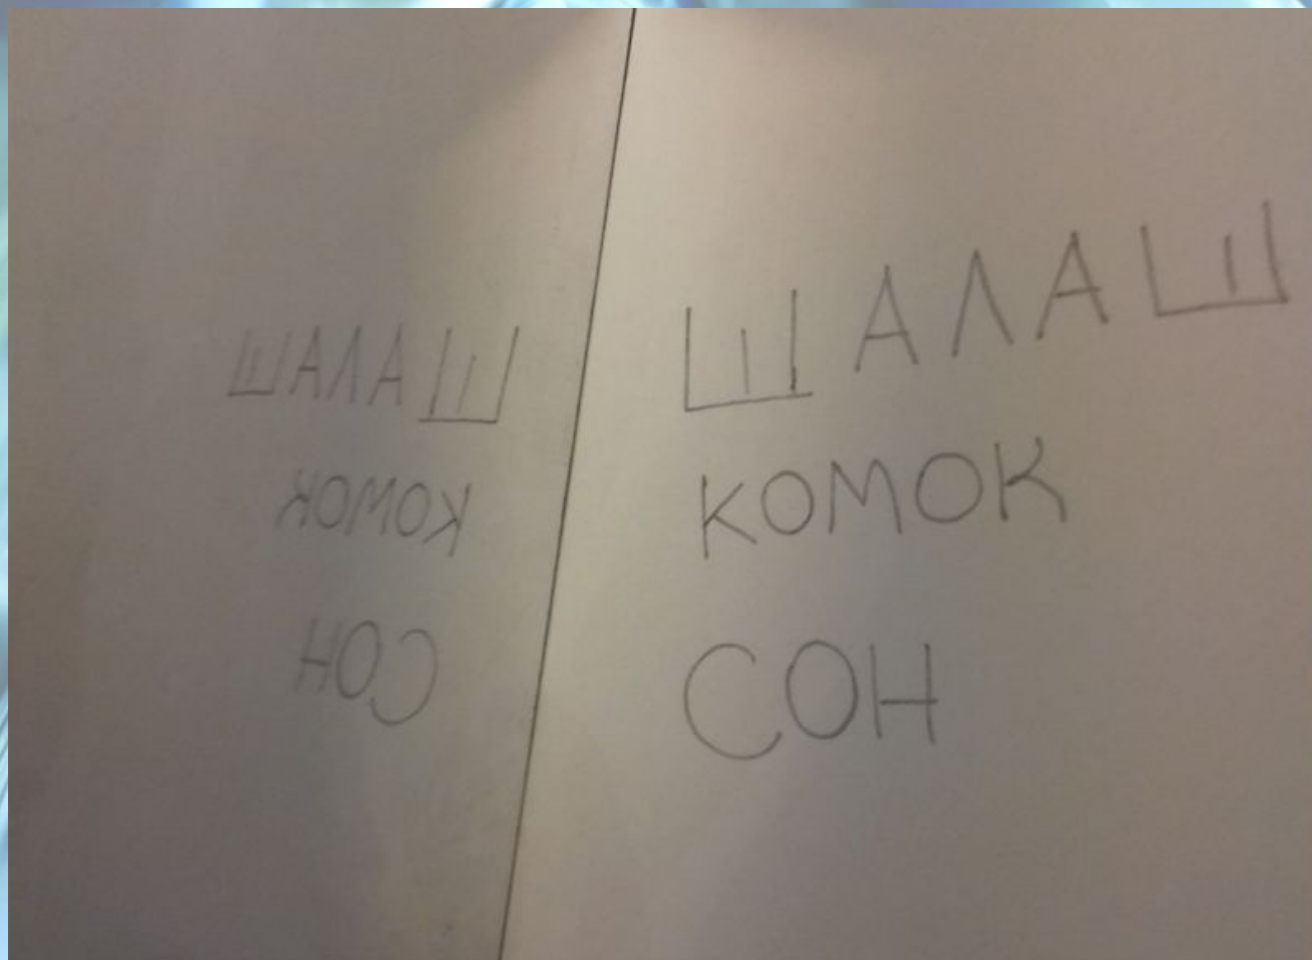 ШАЛАШ
КОМОК
СОН
ШАЛАШ
КОМОК
СОН